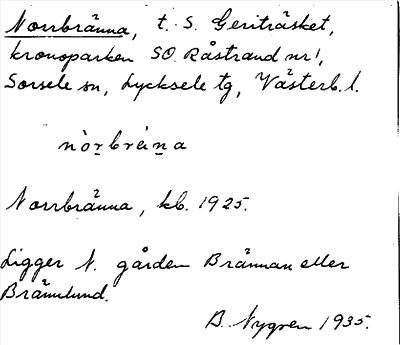 Norrbränna, t. S. Geriträsket,
kronoparken SO. Råstrand nr 1,
Sorsele sn, Lycksele tg, Västerb. l.
nòr̠brän̠a
Norrbränna, kb. 1925.
Ligger N. gården Brännan eller
Brännlund.
B. Nygren 1935.